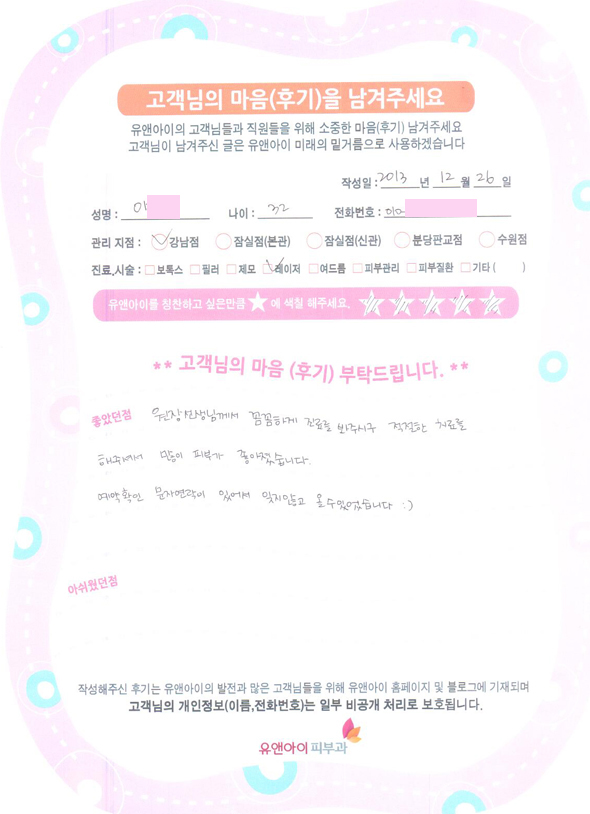 고객님의 마음(후기)을 남겨주세요
유앤아이의 고객님들과 직원들을 위해 소중한 마음(후기) 남겨주세요
고객님이 남겨주신 글은 유앤아이 미래의 밑거름으로 사용하겠습니다
작성일 : 2013 년 12 월 26 일
성명 : 이 나이 : 32 전화번호 : 010
관리 지점 : 강남점 잠실점(본관) 잠실점(신관) 분당판교점 수원점
진료.시술 : 보톡스 필러 제모 레이저 여드름 피부관리 피부질환 기타 ( )
유앤아이를 칭찬하고 싶은만큼 ★ 에 색칠 해주세요.
** 고객님의 마음 (후기) 부탁드립니다. **
좋았던점 원장선생님께서 꼼꼼하게 진료를 봐주시구 적절한 치료를
해주셔서 많이 피부가 좋아졌습니다.
예약확인 문자연락이 있어서 잊지않고 올수있었습니다 :)
아쉬웠던점
작성해주신 후기는 유앤아이의 발전과 많은 고객님들을 위해 유앤아이 홈페이지 및 블로그에 기재되며
고객님의 개인정보(이름,전화번호)는 일부 비공개 처리로 보호됩니다.
유앤아이 피부과